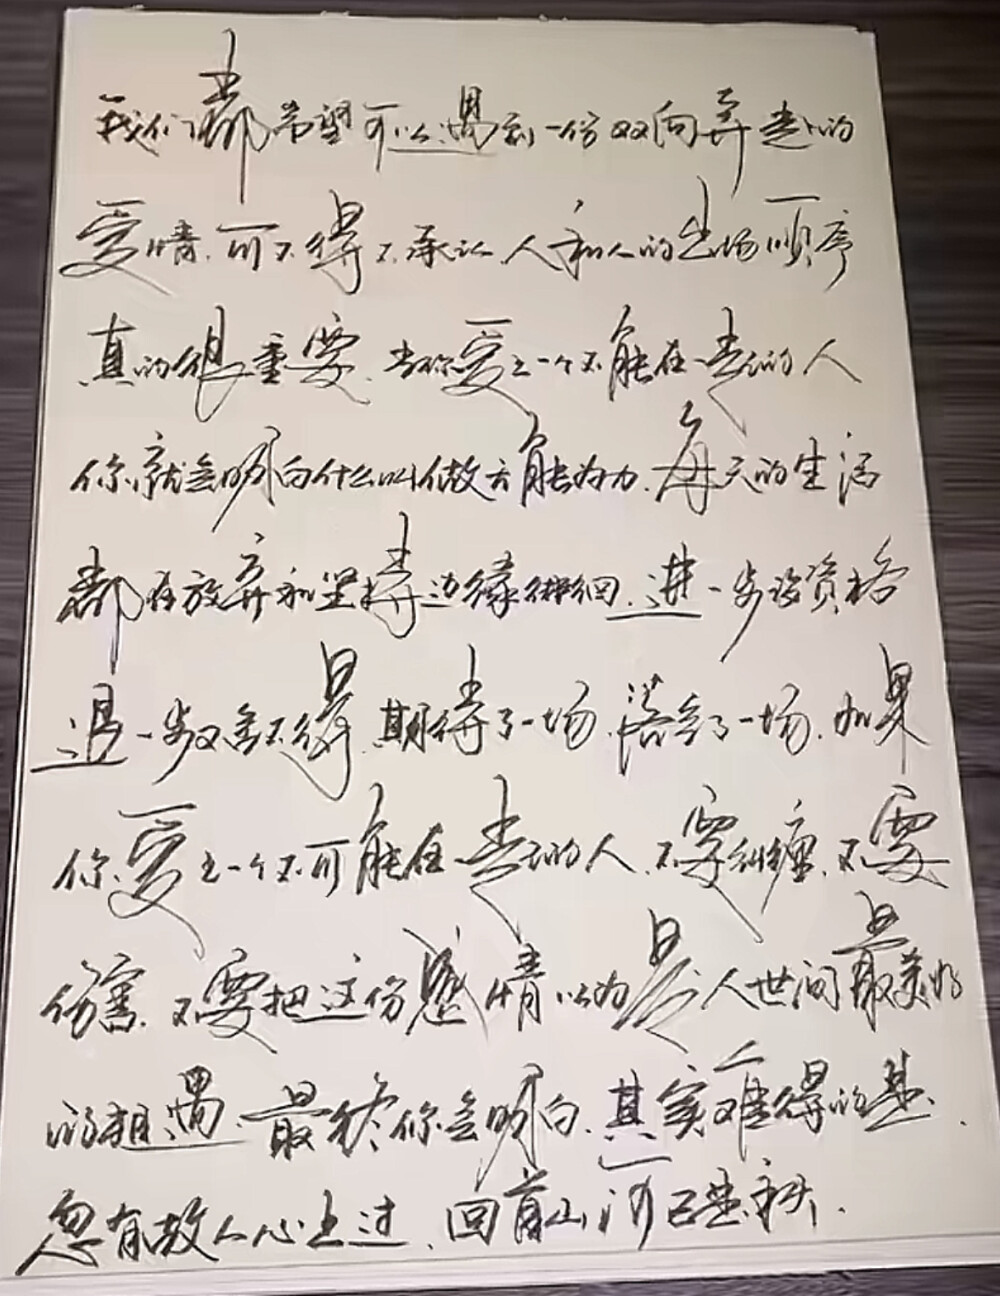 我们都希望可以遇到一份双向奔赴的
爱情.可不得不承认.人和人的出场顺序
真的很重要.当你爱上一个不能在一起的人
你就会明白什么叫做无能为力.每天的生活
都在放弃和坚持边缘徘徊.进一步没资格
退一步又舍不得.期待了一场.落空了一场.如果
你爱上一个不可能在一起的人.不要纠缠.不要
伤害.不要把这份感情以为是人世间最美好
的相遇.最终你会明白.其实难得的是.
忽有故人心上过.回首山河已是秋.